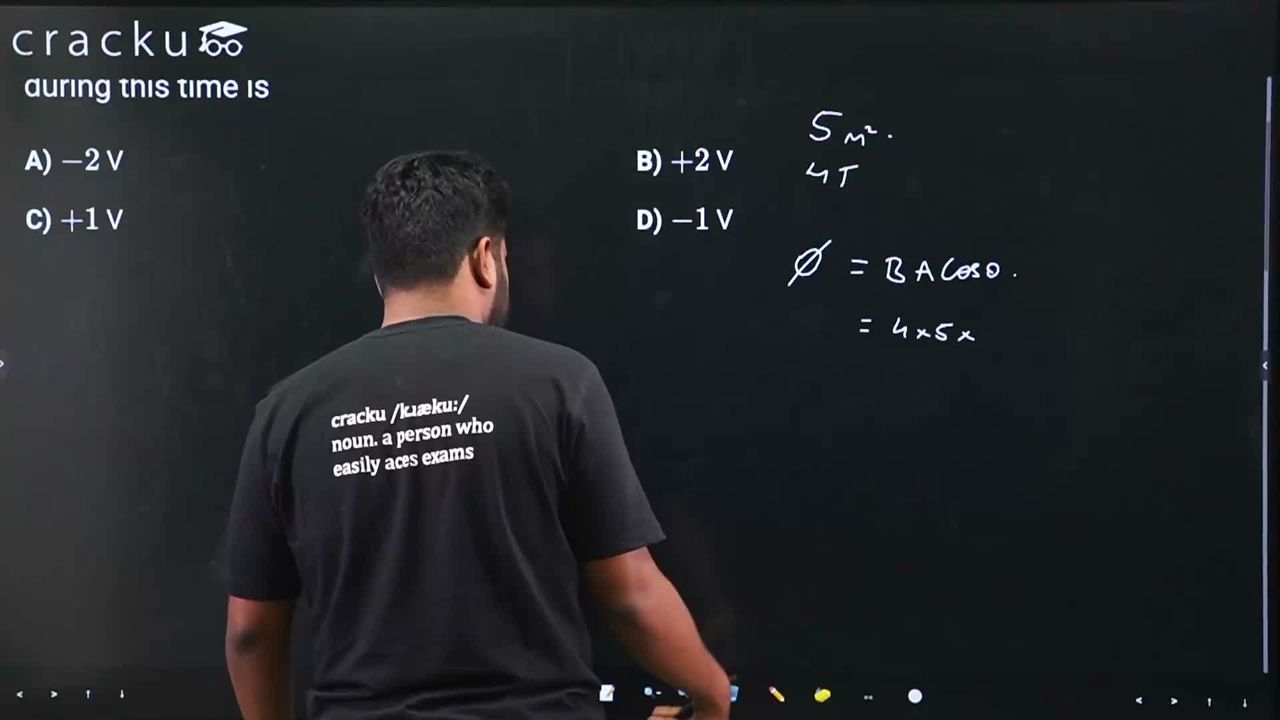 cracku
during this time is
A) −2 V
B) +2 V
C) +1 V
D) −1 V
5 m².
4T
ϕ = BA Cosθ.
= 4×5×
cracku /kɹæku:/
noun. a person who
easily aces exams